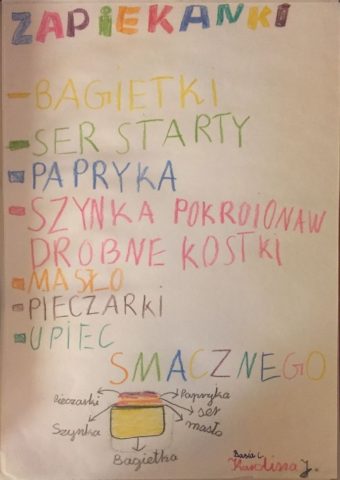 ZAPIEKANKI
- BAGIETKI
- SER STARTY
- PAPRYKA
- SZYNKA POKROIONAW
DROBNE KOSTKI
- MASŁO
- PIECZARKI
- UPIEC
SMACZNEGO
Pieczarki
Papryka
ser
Szynka
masło
Bagietka
Basia C.
Karolina J.